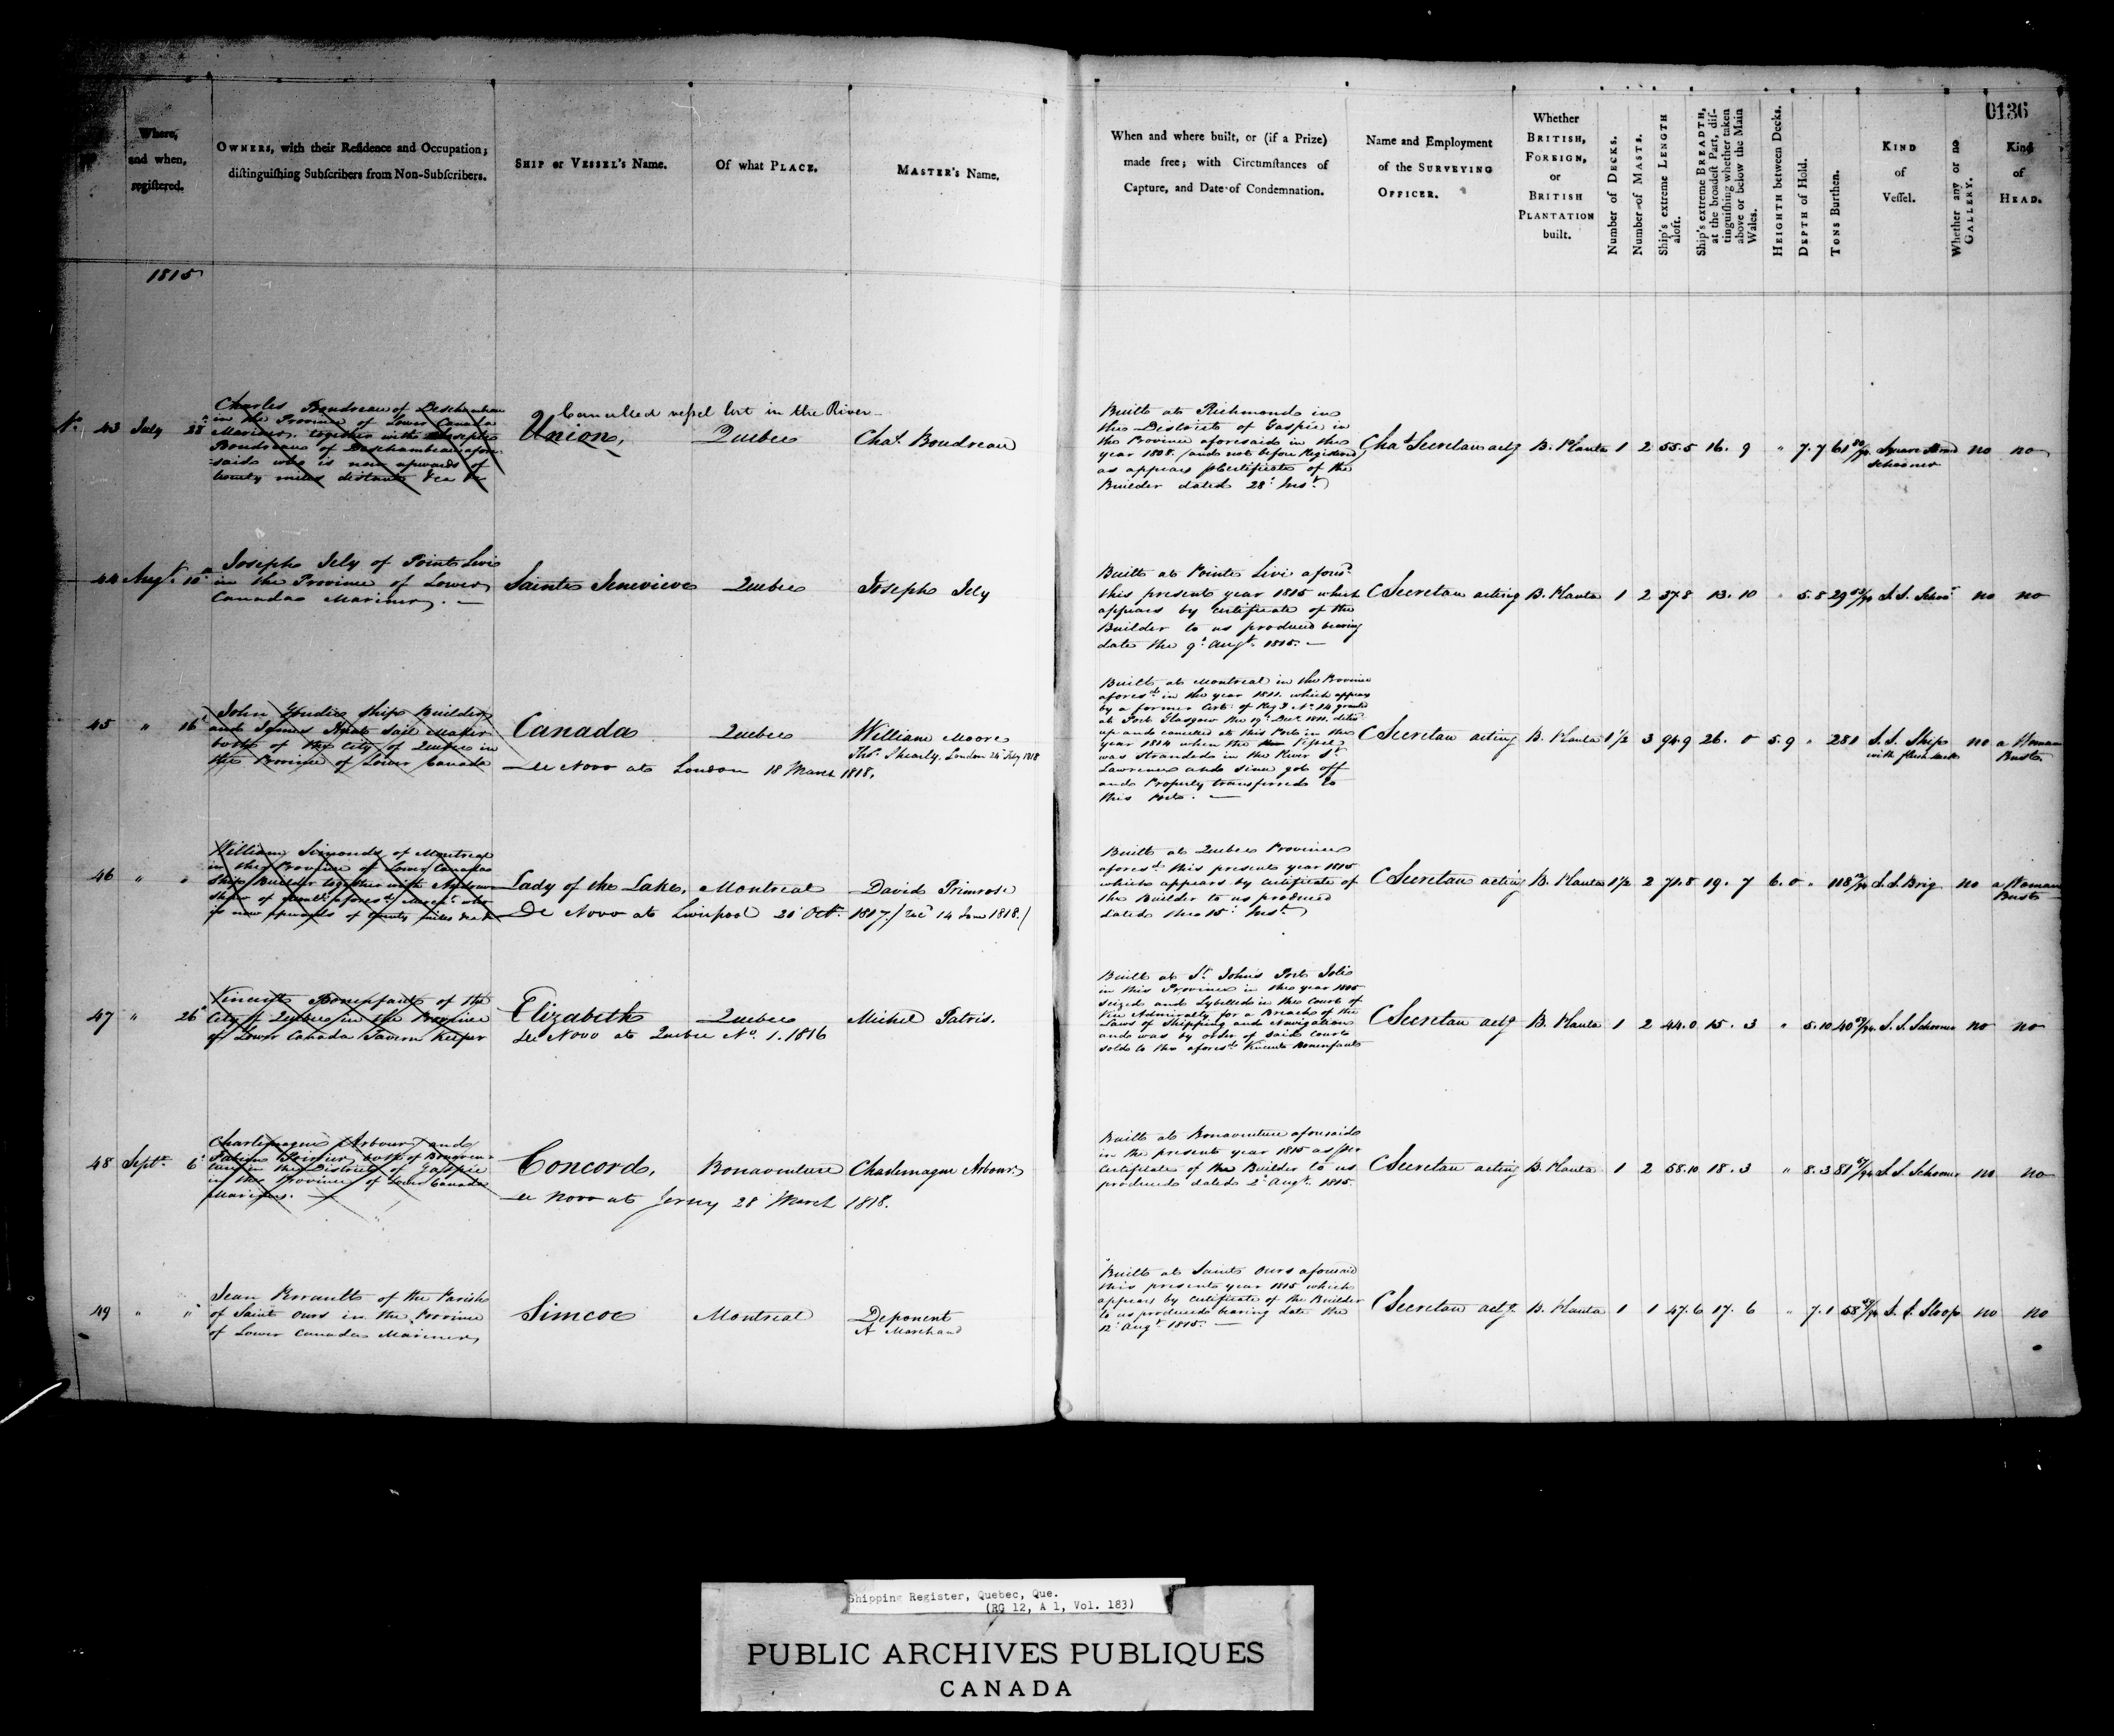 0136
Where,
and when,
registered.
OWNERS, with their Residence and Occupation;
distinguishing Subscribers from Non-Subscribers.
SHIP or VESSEL's Name.
Of what PLACE.
MASTER's Name.
When and where built, or (if a Prize)
made free; with Circumstances of
Capture, and Date of Condemnation.
Name and Employment
of the SURVEYING
OFFICER.
Whether
BRITISH,
FOREIGN,
or
BRITISH
PLANTATION
built.
Number of DECKS.
Number of MASTS.
Ship's extreme LENGTH
aloft.
Ship's extreme BREADTH,
at the broadest Part, dis-
tinguishing whether taken
above or below the Main
Wales.
HEIGHTH between Decks.
DEPTH of Hold.
TONS Burthen.
KIND
of
Vessel.
Whether any or no
GALLERY.
Kind
of
HEAD.
1815
No. 43 July 28
Charles Boudreau of Deschambau
in the Province of Lower Canada
Mariner, together with Joseph
Boudreau of Deschambeau afore
said who is now upwards of
twenty miles distant &ca &c
Cancelled vessel lost in the River
Union,
Quebec
Chas. Boudreau
Built at Richmond in
the District of Gaspie in
the Province aforesaid in the
year 1808. (and not before Registered)
as appears p Certificate of the
Builder dated 28th Inst.
Chas Secretan actg
B. Planta
1 2 55.5 16. 9 " 7.7 61 80/94
Square Sternd
Schooner
no no
44 Augt. 10th
Joseph Jely of Point Levi
in the Province of Lower
Canada Mariner. —
Sainte Jenevieve
Quebec
Joseph Jely
Built at Pointe Livi afores'd
this present year 1815 which
appears by Certificate of the
Builder to us produced bearing
date the 9th Augt. 1815. —
C Secretan acting
B. Planta
1 2 37.8 13. 10 " 5.8 29
S. S. Schor
no no
45 " 16
John Goudie Ship Builder
and James Hunt Sail Maker
both of the City of Quebec in
the Province of Lower Canada
Canada
Quebec
William Moore
Thos. Shearly, London 24 July 1818
De Novo at London 18 March 1818.
Built at Montreal in the Province
afores'd in the year 1811. which appears
by a former Cert: of Reg'y No. 14 granted
at Port Glasgow the 19th Decr. 1811. deliv'd
up and cancelled at this Port in the
year 1814 when the Vessel
was Stranded in the River St
Lawrence and since got off
and Property transferred to
this Port. —
C Secretan acting
B. Planta
1½ 3 94.9 26. 0 5.9 " 281
S. S. Ship
with flush deck
no
a Woman
Bust
46 " "
William Simonds of Montreal
in the Province of Lower Canada
Ship Builder together with Andrew
Shaw of Montl. afores'd March't who
is now upwards of twenty miles &c &c
Lady of the Lake,
Montreal
David Primrose
De Novo at Liverpool 20 Oct. 1817 / rec'd 14 Jan 1818./
Built at Quebec Province
afores'd this present year 1815
which appears by Certificate of
the Builder to us produced
dated the 15th Inst.
C Secretan acting
B. Planta
1½ 2 71.8 19. 7 6. 0 " 118
S. S. Brig
no
a Woman
Bust
47 " 26
Vincent Bonenfant of the
City of Quebec in the Province
of Lower Canada Tavern Keeper
Elizabeth
Quebec
Michel Patris.
De Novo at Quebec No. 1. 1816
Built at St. John's Port Joli
in this Province in the year 1805
seized and Lybelled in the Court of
Vice Admiralty for a Breach of the
Laws of Shipping and Navigation
and was by order of said Court
sold to the afores'd Vincent Bonenfant
C Secretan actg
B. Planta
1 2 44.0 15. 3 " 5.10 40
S. S. Schooner
no no
48 Septr. 6
Charlemagne Arbour and
Fabien Poirier both of Bonaven
ture in the District of Gaspie
in the Province of Lower Canada
Mariners. —
Concord,
Bonaventure
Charlemagne Arbour
De Novo at Jersey 28 March 1818.
Built at Bonaventure aforesaid
in the present year 1815 as per
Certificate of the Builder to us
produced dated 2d Augt. 1815.
C Secretan acting
B. Planta
1 2 58.10 18. 3 " 8.3 81 67/94
S. S. Schooner
no no
49 " "
Jean Perrault of the Parish
of Saint Ours in the Province
of Lower Canada Mariner,
Simcoe
Montreal
Deponent
A Marchand
Built at Saint Ours aforesaid
this present year 1815 which
appears by Certificate of the Builder
to us produced bearing date the
12 Augt 1815. —
C Secretan actg.
B. Planta
1 1 47.6 17. 6 " 7.1 58
S. S. Sloop
no no
Shipping Register, Quebec, Que.
(RG 12, A 1, Vol. 183)
PUBLIC ARCHIVES PUBLIQUES
CANADA